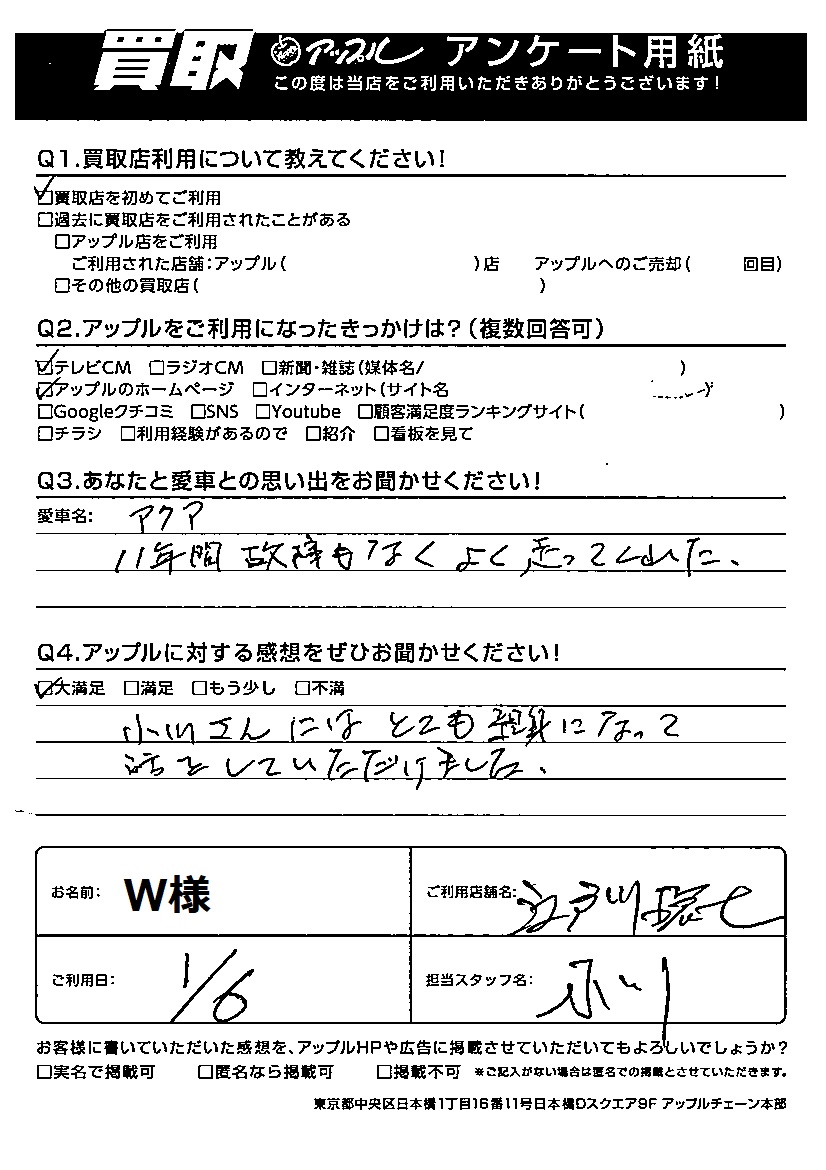 買取 アップル アンケート用紙
この度は当店をご利用いただきありがとうございます!
Q1.買取店利用について教えてください!
☑買取店を初めてご利用
□過去に買取店をご利用されたことがある
□アップル店をご利用
ご利用された店舗:アップル( )店 アップルへのご売却( 回目)
□その他の買取店( )
Q2.アップルをご利用になったきっかけは?(複数回答可)
☑テレビCM □ラジオCM □新聞・雑誌(媒体名/ )
☑アップルのホームページ □インターネット(サイト名 )
□Googleクチコミ □SNS □Youtube □顧客満足度ランキングサイト( )
□チラシ □利用経験があるので □紹介 □看板を見て
Q3.あなたと愛車との思い出をお聞かせください!
愛車名: アクア
11年間故障もなくよく走ってくれました。
Q4.アップルに対する感想をぜひお聞かせください!
☑大満足 □満足 □もう少し □不満
小川さんにはとても親身になって
話をしていただけました。
お名前: W様 ご利用店舗名: 江戸川瑞江
ご利用日: 1/6 担当スタッフ名: 小川
お客様に書いていただいた感想を、アップルHPや広告に掲載させていただいてもよろしいでしょうか?
□実名で掲載可 □匿名なら掲載可 □掲載不可 ※ご記入がない場合は匿名での掲載とさせていただきます。
東京都中央区日本橋1丁目16番11号日本橋Dスクエア9F アップルチェーン本部